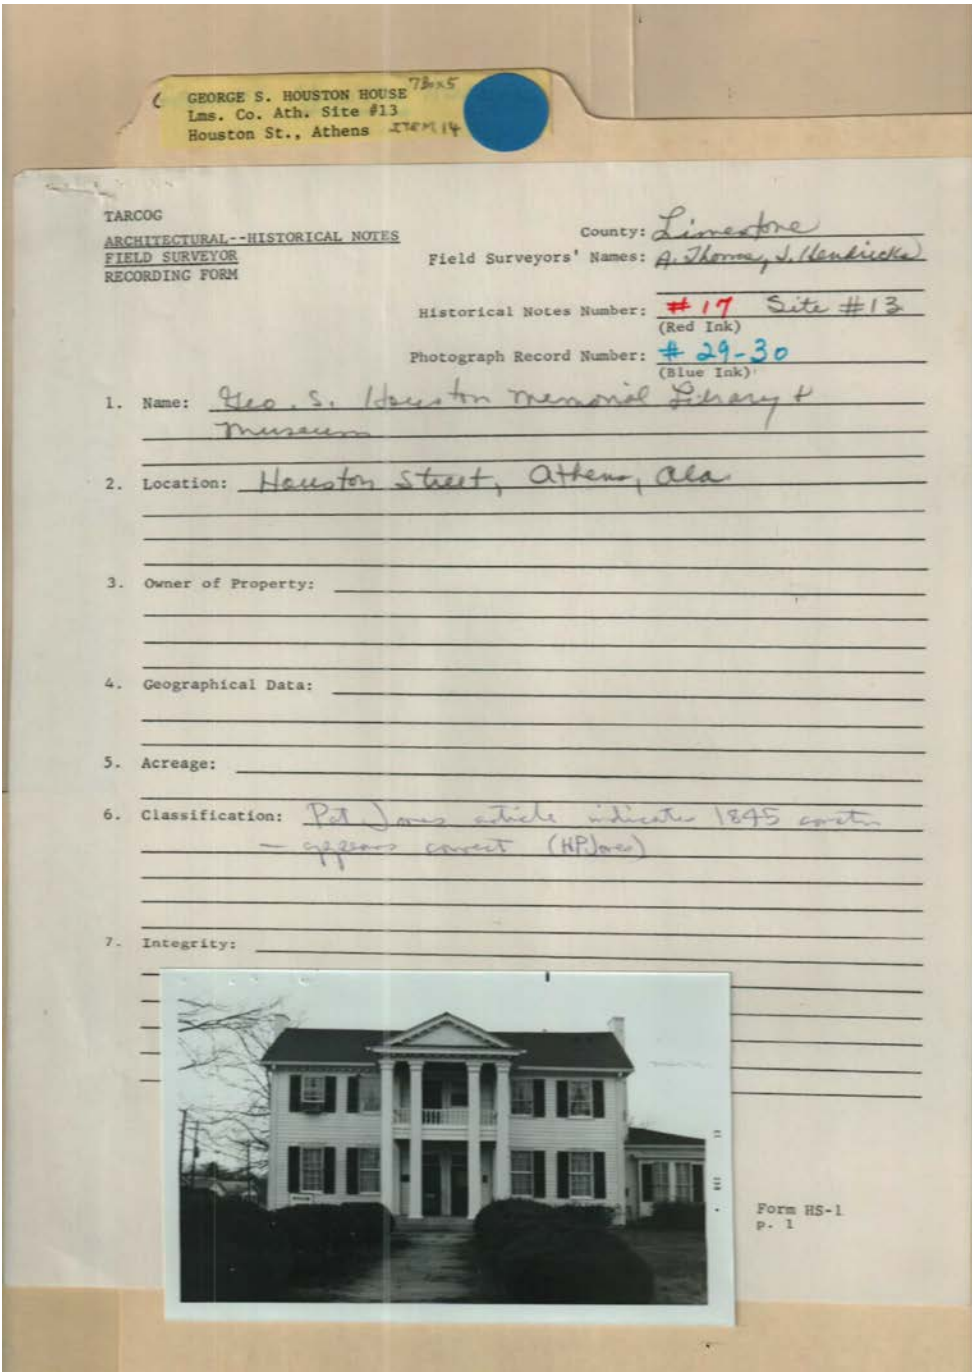 GEORGE S. HOUSTON HOUSE 7Box5
Lms. Co. Ath. Site #13
Houston St., Athens ITEM 14
TARCOG
ARCHITECTURAL--HISTORICAL NOTES
FIELD SURVEYOR
RECORDING FORM
County: Limestone
Field Surveyors' Names: A. Thomas, J. Hendricks
Historical Notes Number: #17 Site #13
(Red Ink)
Photograph Record Number: # 29-30
(Blue Ink)
1. Name: Geo. S. Houston Memorial Library &
Museum
2. Location: Houston Street, Athens, Ala
3. Owner of Property:
4. Geographical Data:
5. Acreage:
6. Classification: Pat Jones article indicates 1845 constn
— appears correct (HPJones)
7. Integrity:
Form HS-1
p. 1